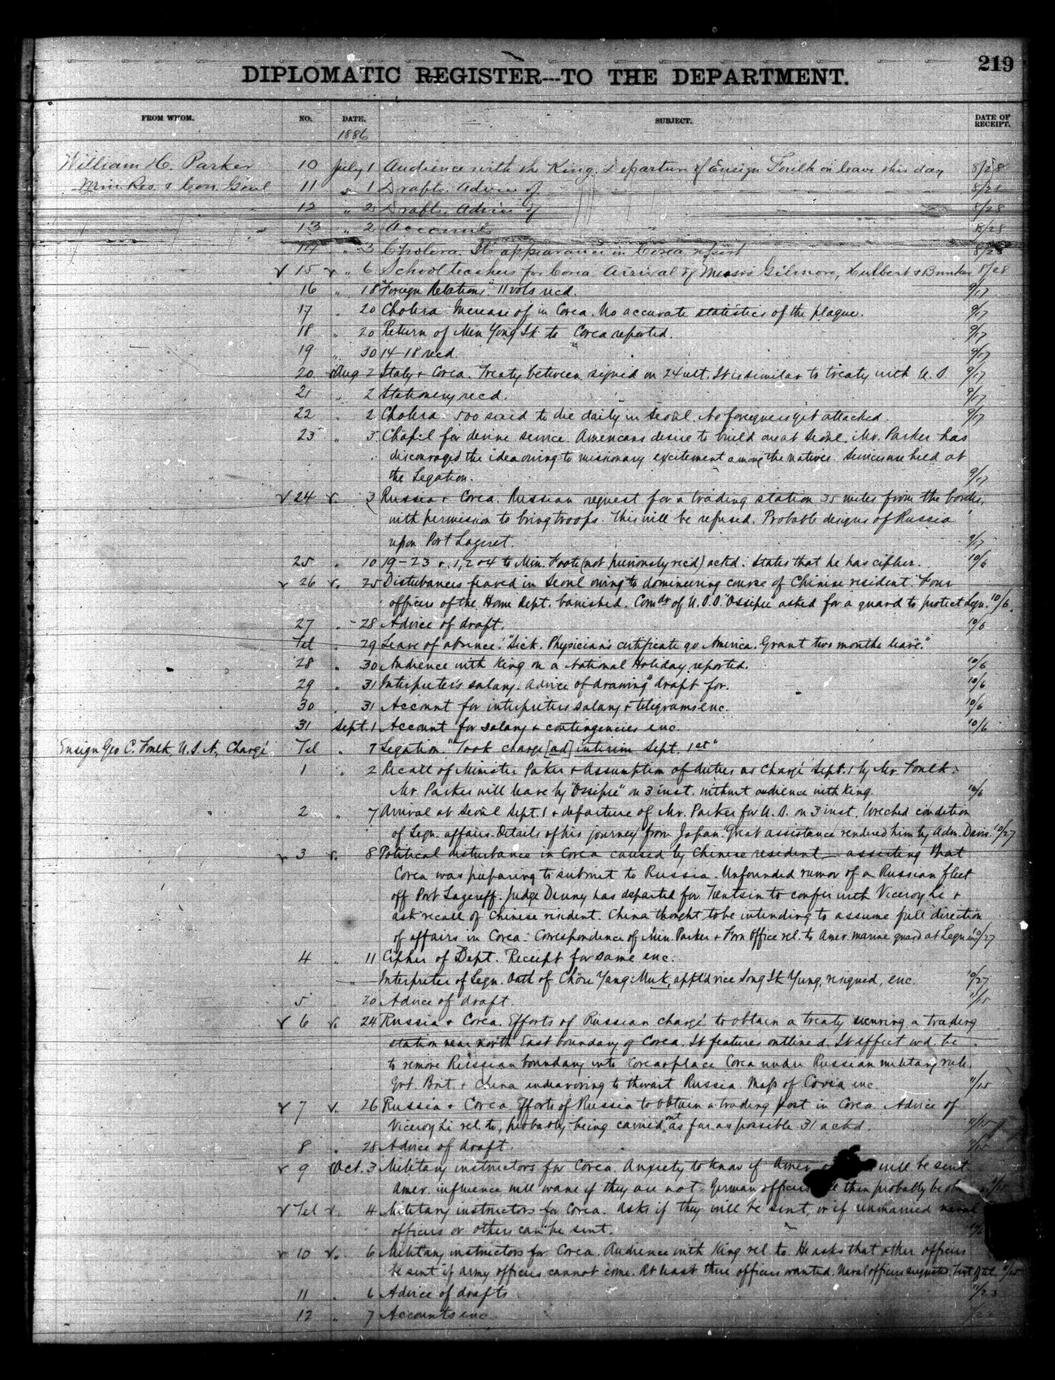 219
DIPLOMATIC REGISTER---TO THE DEPARTMENT.
FROM WHOM. NO. DATE. SUBJECT. DATE OF RECEIPT.
1886
William H. Parker 10 July 1 Audience with the King. Departure of Ensign Foulk on leave this day 8/28
Min Res. & Con. Genl 11 " 1 Drafts. Advice of 8/28
12 " 2 Drafts. Advice of 8/28
13 " 2 Accounts 8/28
14 " 3 Cholera. Its appearance in Corea report 8/28
✓ 15 ✓ " 6 School teachers for Corea. Arrival of Messrs Gilmore, Hulbert & Bunker 8/28
16 " 18 "Foreign Relations" 11 vols recd. 9/17
17 " 20 Cholera. Increase of in Corea. No accurate statistics of the plague. 9/17
18 " 20 Return of Min Yong Ik to Corea reported. 9/17
19 " 30 14-18 recd. 9/17
20 Aug 2 Italy & Corea. Treaty between, signed on 24 ult. It is similar to treaty with U.S. 9/17
21 " 2 Stationery recd. 9/17
22 " 2 Cholera. 500 said to die daily in Seoul. No foreigners yet attacked. 9/17
23 " 3 Chapel for devine service. Americans desire to build one at Seoul. Mr. Parker has
discouraged the idea owing to missionary excitement among the natives. Services are held at
the Legation. 9/17
✓ 24 ✓ 3 Russia & Corea. Russian request for a trading station 35 miles from the border,
with permission to bring troops. This will be refused. Probable designs of Russia
upon Port Lazeret. 9/17
25 " 10 19-23 & 1, 2 & 4 to Min. Foote (not previously recd) ackd. States that he has cipher. 10/6
✓ 26 ✓ 25 Disturbances feared in Seoul owing to domineering course of Chinese resident. Four
officers of the Home Dept. banished. Comdr of U.S.S. Ossipee asked for a guard to protect Legn. 10/6
27 " 28 Advice of draft. 10/6
Tel " 29 Leave of absence. "Sick. Physician's certificate go America. Grant two months leave."
28 " 30 Audience with King on a National Holiday, reported. 10/6
29 " 31 Interpreter's salary. Advice of drawing draft for. 10/6
30 " 31 Account for interpreters salary & telegrams enc. 10/6
31 Sept. 1 Account for salary & contingencies enc. 10/6
Ensign Geo C. Foulk, U.S.N., Chargé Tel " 7 Legation. "Took charge [ad] interim Sept. 1st"
1 " 2 Recall of Minister Paker & Assumption of duties as Chargé Sept. 1 by Mr. Foulk.
Mr. Parker will leave by "Ossipee" on 3 inst. without audience with King. 10/6
2 " 7 Arrival at Seoul Sept. 1 & departure of Mr. Parker for U.S. on 3 inst. Wreched condition
of Legn. affairs. Details of his journey from Japan. Great assistance rendered him by Adm. Davis. 10/27
✓ 3 ✓ 8 Political disturbance in Corea caused by Chinese resident asserting that
Corea was preparing to submit to Russia. Unfounded rumor of a Russian fleet
off Port Lazereff. Judge Denny has departed for Tientsin to confer with Viceroy Li &
ask recall of Chinese resident. China thought to be intending to assume full direction
of affairs in Corea. Correspondence of Min. Parker & Forn Office rel. to Amer. marine guard at Legn. 10/27
4 " 11 Cipher of Dept. Receipt for same enc.
Interpreter of Legn. Oath of Chore Yang Muk, apptd vice Song Ik Yung, resigned, enc. 10/27
5 20 Advice of draft 11/15
✓ 6 ✓ 24 Russia & Corea. Efforts of Russian chargé to obtain a treaty securing a trading
station near north East boundary of Corea. It features outlined. It affect wd be
to remove Russian boundary into Corea & place Corea under Russian military rule.
Grt. Brit. & China endeavoring to thwart Russia. Map of Corea inc. 11/15
✓ 7 ✓ 26 Russia & Corea. Efforts of Russia to obtain a trading post in Corea. Advice of
Viceroy Li rel to, probably being carried out as far as possible. 31 ackd. 11/15
8 " 28 Advice of draft. 11/15
✓ 9 Oct. 3 Military instructors for Corea. Anxiety to know if Amer will be sent.
Amer. influence will wane if they are not. German officers then probably be 11/15
✓ Tel ✓ 4 Military instructors for Corea. Asks if they will be sent, or if unmarried naval
officers or others can be sent.
✓ 10 ✓ 6 Military instructors for Corea. Audience with King rel to. He asks that other officers
be sent if army officers cannot come. At least three officers wanted. Naval officers suggested.
11 " 6 Advice of drafts
12 " 7 Accounts enc